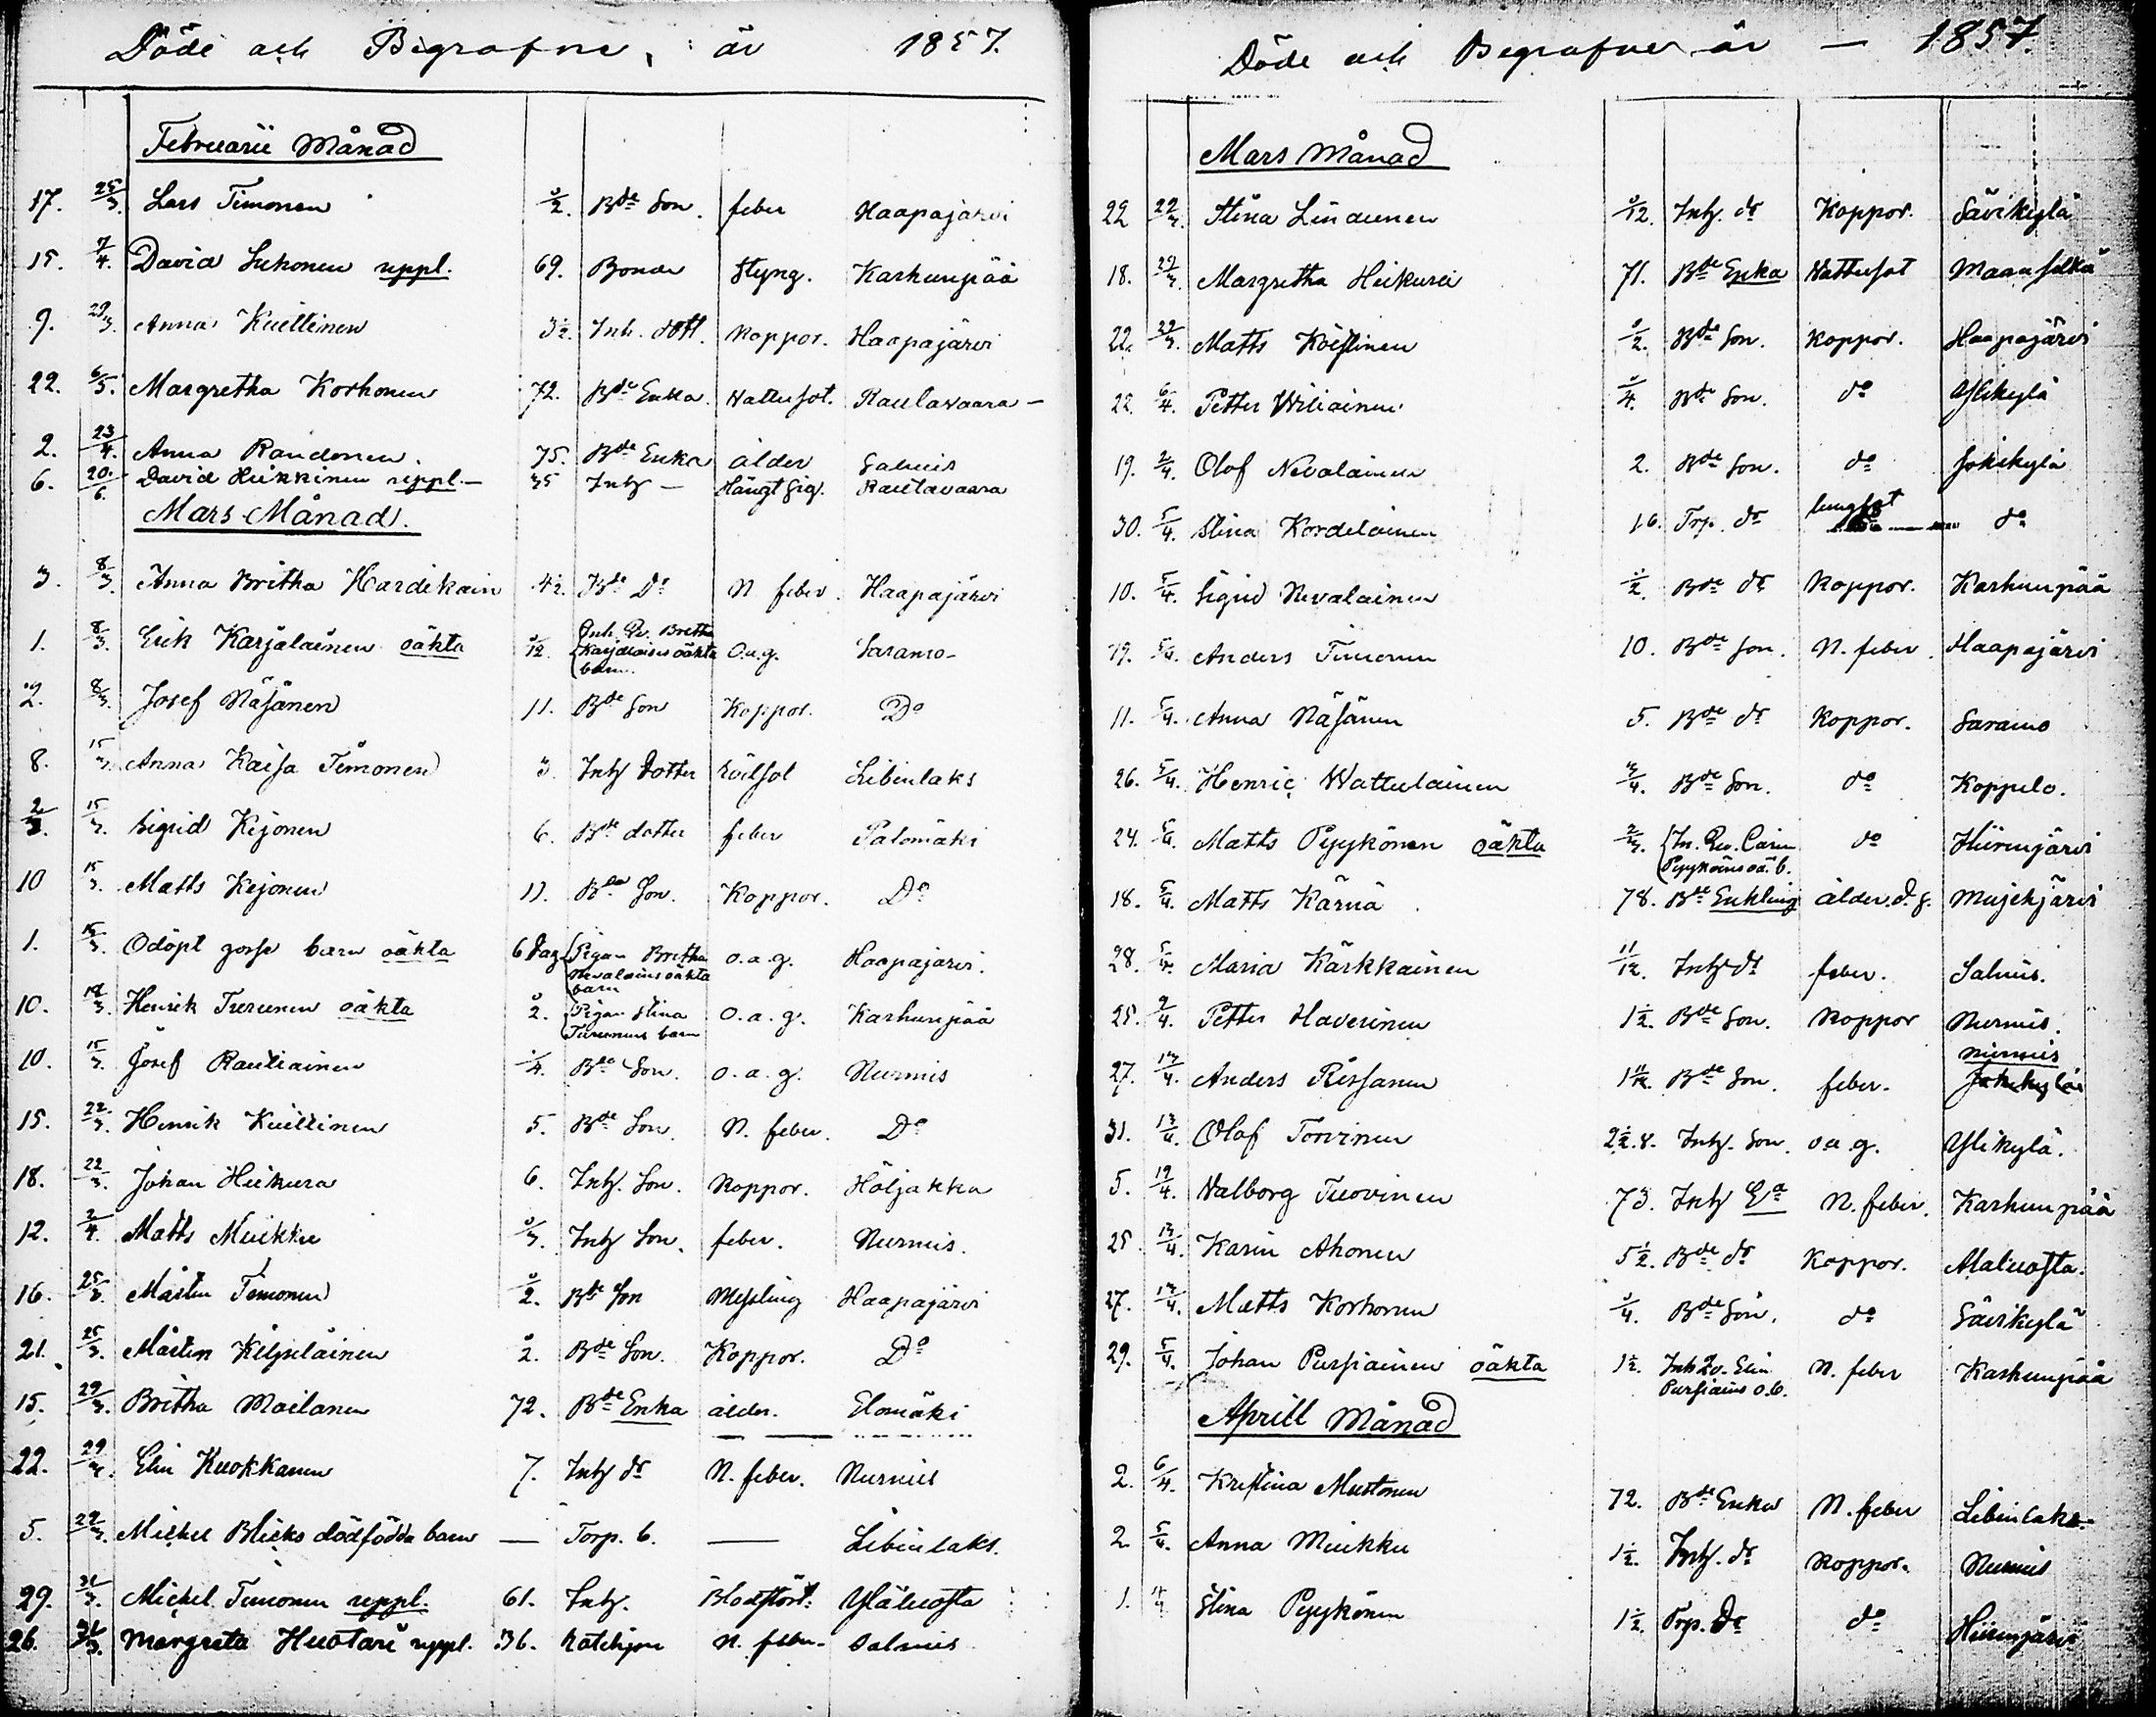 Döde och Begrafne, år 1857.
Februarii Månad
17. 25/3. Lars Timonen ½. Bde Son. feber Haapajärvi
15. 7/4. David Sukonen uppl. 69. Bonde Styng. Karhunpää
9. 29/3. Anna Kuittinen 3½. Inh. dott. Koppor. Haapajärvi
22. 6/5. Margretha Korhonen 72. Bde Enka. Wattusot. Rautavaara —
2. 23/4. Anna Randonen. 75. Bde Enka ålder Salmis
6. 20/6. David Heikkinen uppl. — 35 Inh — Hängt sig. Rautavaara
Mars Månad.
3. 8/3. Anna Britha Hardikain 4½. Bde Do N. feber. Haapajärvi
1. 8/3. Erik Karjalainen oäkta 1/12. Inh. Qv. Britha Karjalains oäkta barn. o.a.g. Saramo —
2. 8/3. Josef Näsänen 11. Bde Son Koppor. Do
8. 15/3. Anna Kaisa Timonen 3. Inh dotter Libenlaks
2/3. 15/3. Sigrid Kejonen 6. Bde dotter feber Palomäki
10 15/3. Matts Kejonen 11. Bde Son. Koppor. Do
1. 15/3. Odöpt gosse barn oäkta 6 Dag {Pigan Britha Nevalains oäkta barn o.a.g. Haapajärvi.
10. 18/3. Henrik Turunen oäkta ½. {Pigan Stina Turunens barn o.a.g. Karhunpää
10. 15/3. Josef Rautiainen ¼. Bde Son. o.a.g. Nurmis
15. 22/3. Henrik Kuittinen 5. Bde Son. N. feber. Do
18. 22/3. Johan Heikura 6. Inh. Son. Koppor. Höljakka
12. 2/4. Matts Muikku 1/3. Inh Son. feber. Nurmis.
16. 25/3. Mårten Timonen ½. Bde Son Messling Haapajärvi
21. 25/3. Mårten Kilpeläinen ½. Bde Son. Koppor. Do
15. 29/3. Britha Moilanen 72. Bde Enka ålder. Elomäki
22. 29/3. Elin Kuokkanen 7. Inh dr N. feber. Nurmis
5. 29/3. Mickel Blicks dödfödda barn — Torp. b. — Libenlaks.
29. 31/3. Mickel Timonen uppl. 61. Inh. Blodstört. Yläluosta
26. 31/3. Margreta Huotari uppl. 36. N. feber. Salmis
Döde och Begrafne år — 1857.
Mars Månad
22 22/3. Stina Linnunen 1/12. Inh. dr Koppor. Savikylä
18. 29/3. Margretha Heikura 71. Bde Enka Wattusot Maanselkä
22. 29/3. Matts Köistinen ½. Bde Son. Koppor. Haapajärvi
22. 6/4. Petter Wiliainen ¼. Bde Son. do Ylikylä
19. 2/4. Olof Nevalainen 2. Bde Son. do Jokikylä
30. 5/4. Stina Kordelainen 16. Trp. dr lungsot do
10. 5/4. Sigrid Nevalainen ½. Bde dr Koppor. Karhunpää
19. 5/4. Anders Timonen 10. Bde Son. N. feber. Haapajärvi
11. 5/4. Anna Näsänen 5. Bde dr Koppor. Saramo
26. 5/4. Henric Wattulainen ¾. Bde Son. do Koppelo.
24. 5/4. Matts Pyykönen oäkta 2/3. {In. Qv. Carin Pyyköins oä. b. do Hiirenjärvi
18. 5/4. Matts Kärnä 78. Bde Enkling ålder. d. f. Mujehjärvi
28. 5/4. Maria Kärkkainen 11/12. Inh dr feber. Salmis.
25. 9/4. Petter Haverinen 1½. Bde Son. Koppor Nurmis.
27. 13/4. Anders Rissanen 1 11/12. Bde Son. feber. Nurmis Jokikylä
31. 13/4. Olof Torvinen 2½. Inh. Son. o.a.g. Ylikylä.
5. 19/4. Walborg Tuovinen 73. Inh Ea N. feber. Karhunpää
25. 13/4. Karin Ahonen 5½. Bde dr Koppor. Alaluosta.
27. 13/4. Matts Korhonen ¼. Bde Son. do Savikylä
29. 5/4. Johan Pursiainen oäkta 1½. Inh Qv. Elin Pursiains o.b. N. feber Karhunpää
Aprill Månad
2. 6/4. Kristina Mustonen 72. Bde Enka N. feber Libenlaks.
2. 5/4. Anna Muikku 1½. Inh. dr Koppor. Nurmis
1. Stina Pyykönen 1½. Trp. Dr do Hiirenjärvi